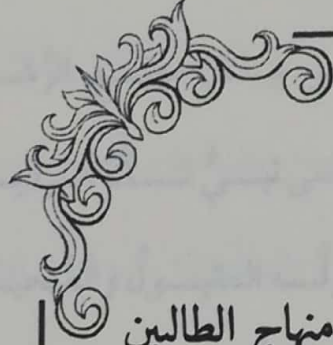 منهاج الطالبين